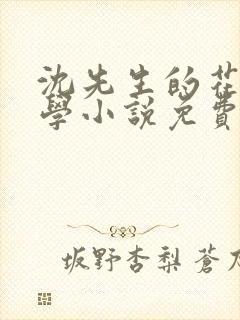 沈先生的花
學小說免費
坂野杏梨 蒼